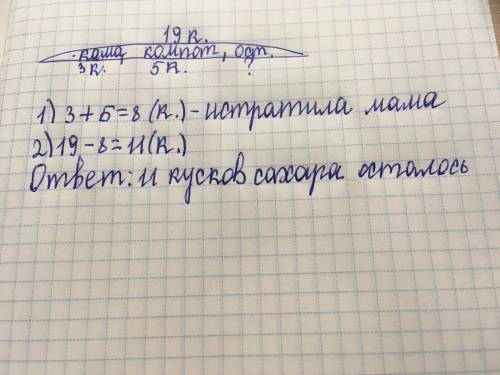 19 к.
каша, компот, ост.
3 к. 5 к. ?
1) 3 + 5 = 8 (к.) - истратила мама
2) 19 - 8 = 11 (к.)
Ответ: 11 кусков сахара осталось